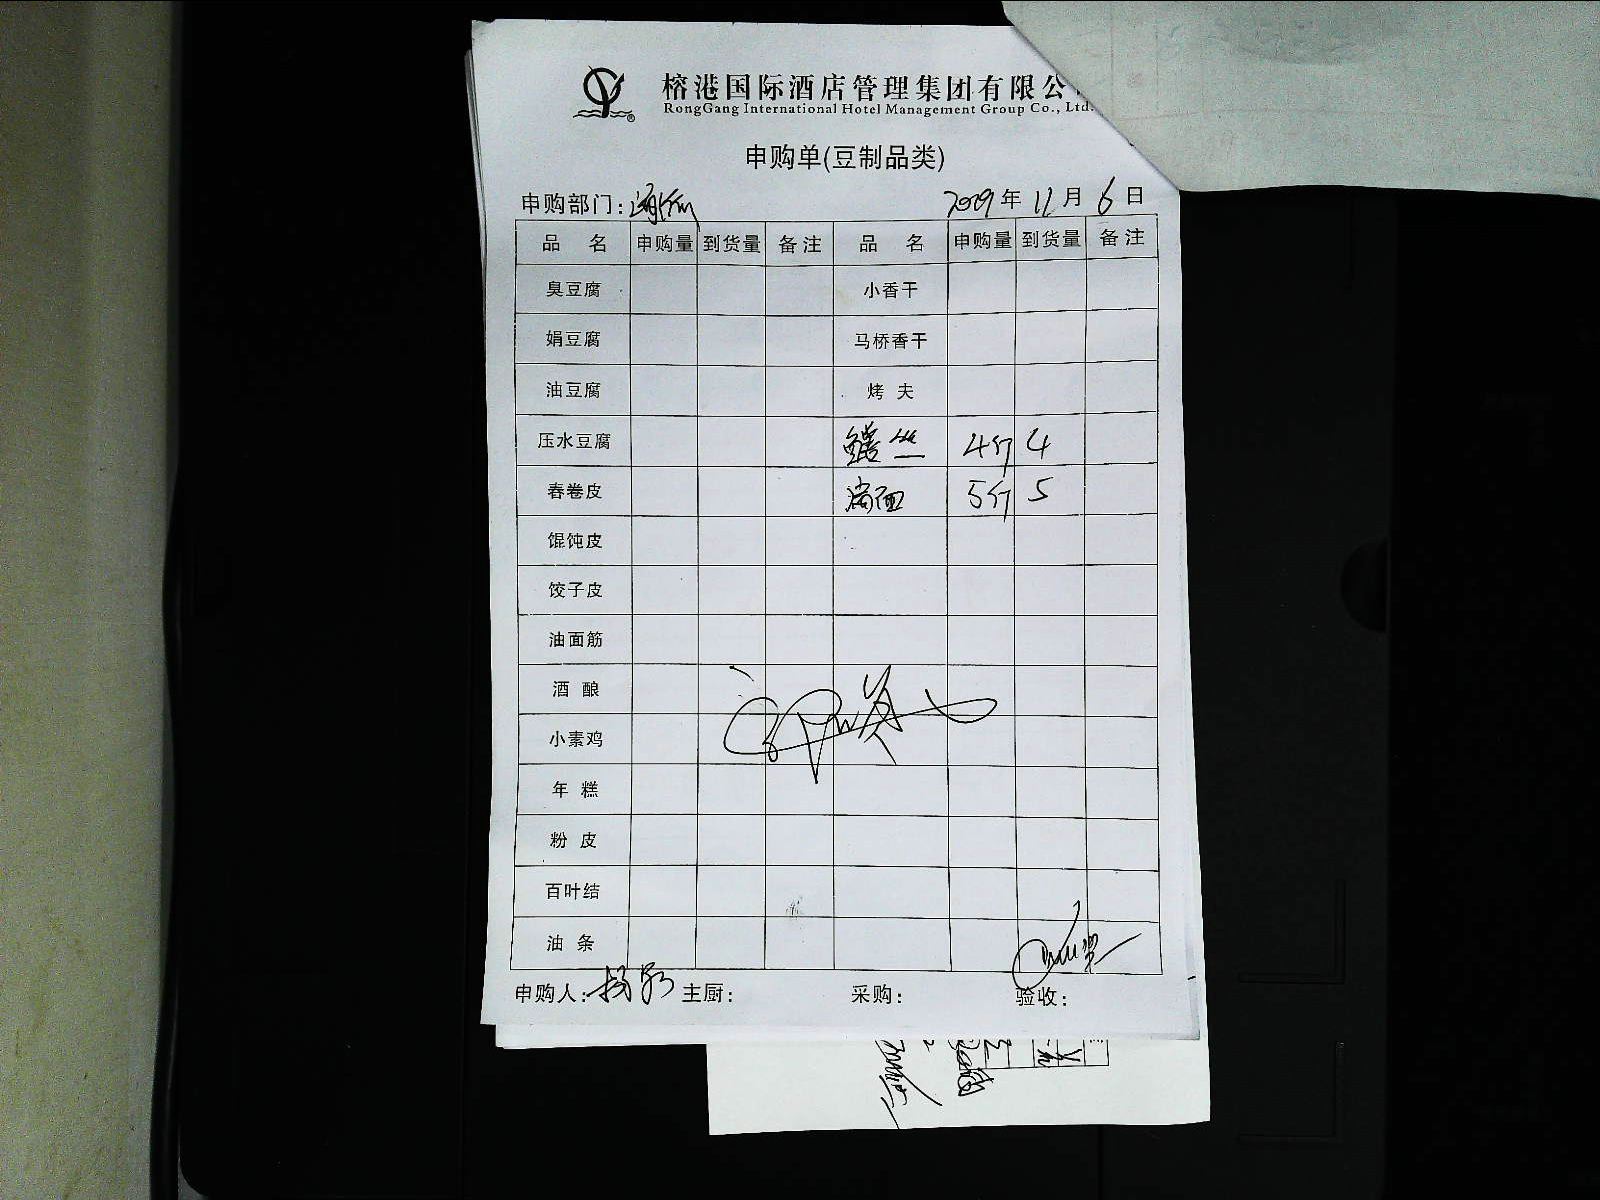 榕港国际酒店管理集团有限公
RongGang International Hotel Management Group Co., Ltd.
申购单(豆制品类)
申购部门: 年 11月 6日
品 名 申购量 到货量 备注 品 名 申购量 到货量 备注
臭豆腐 小香干
娟豆腐 马桥香干
油豆腐 烤 夫
压水豆腐 鳝丝 4斤 4
春卷皮 5斤 5
馄饨皮
饺子皮
油面筋
酒 酿
小素鸡
年 糕
粉 皮
百叶结
油 条
申购人: 主厨: 采购: 验收: